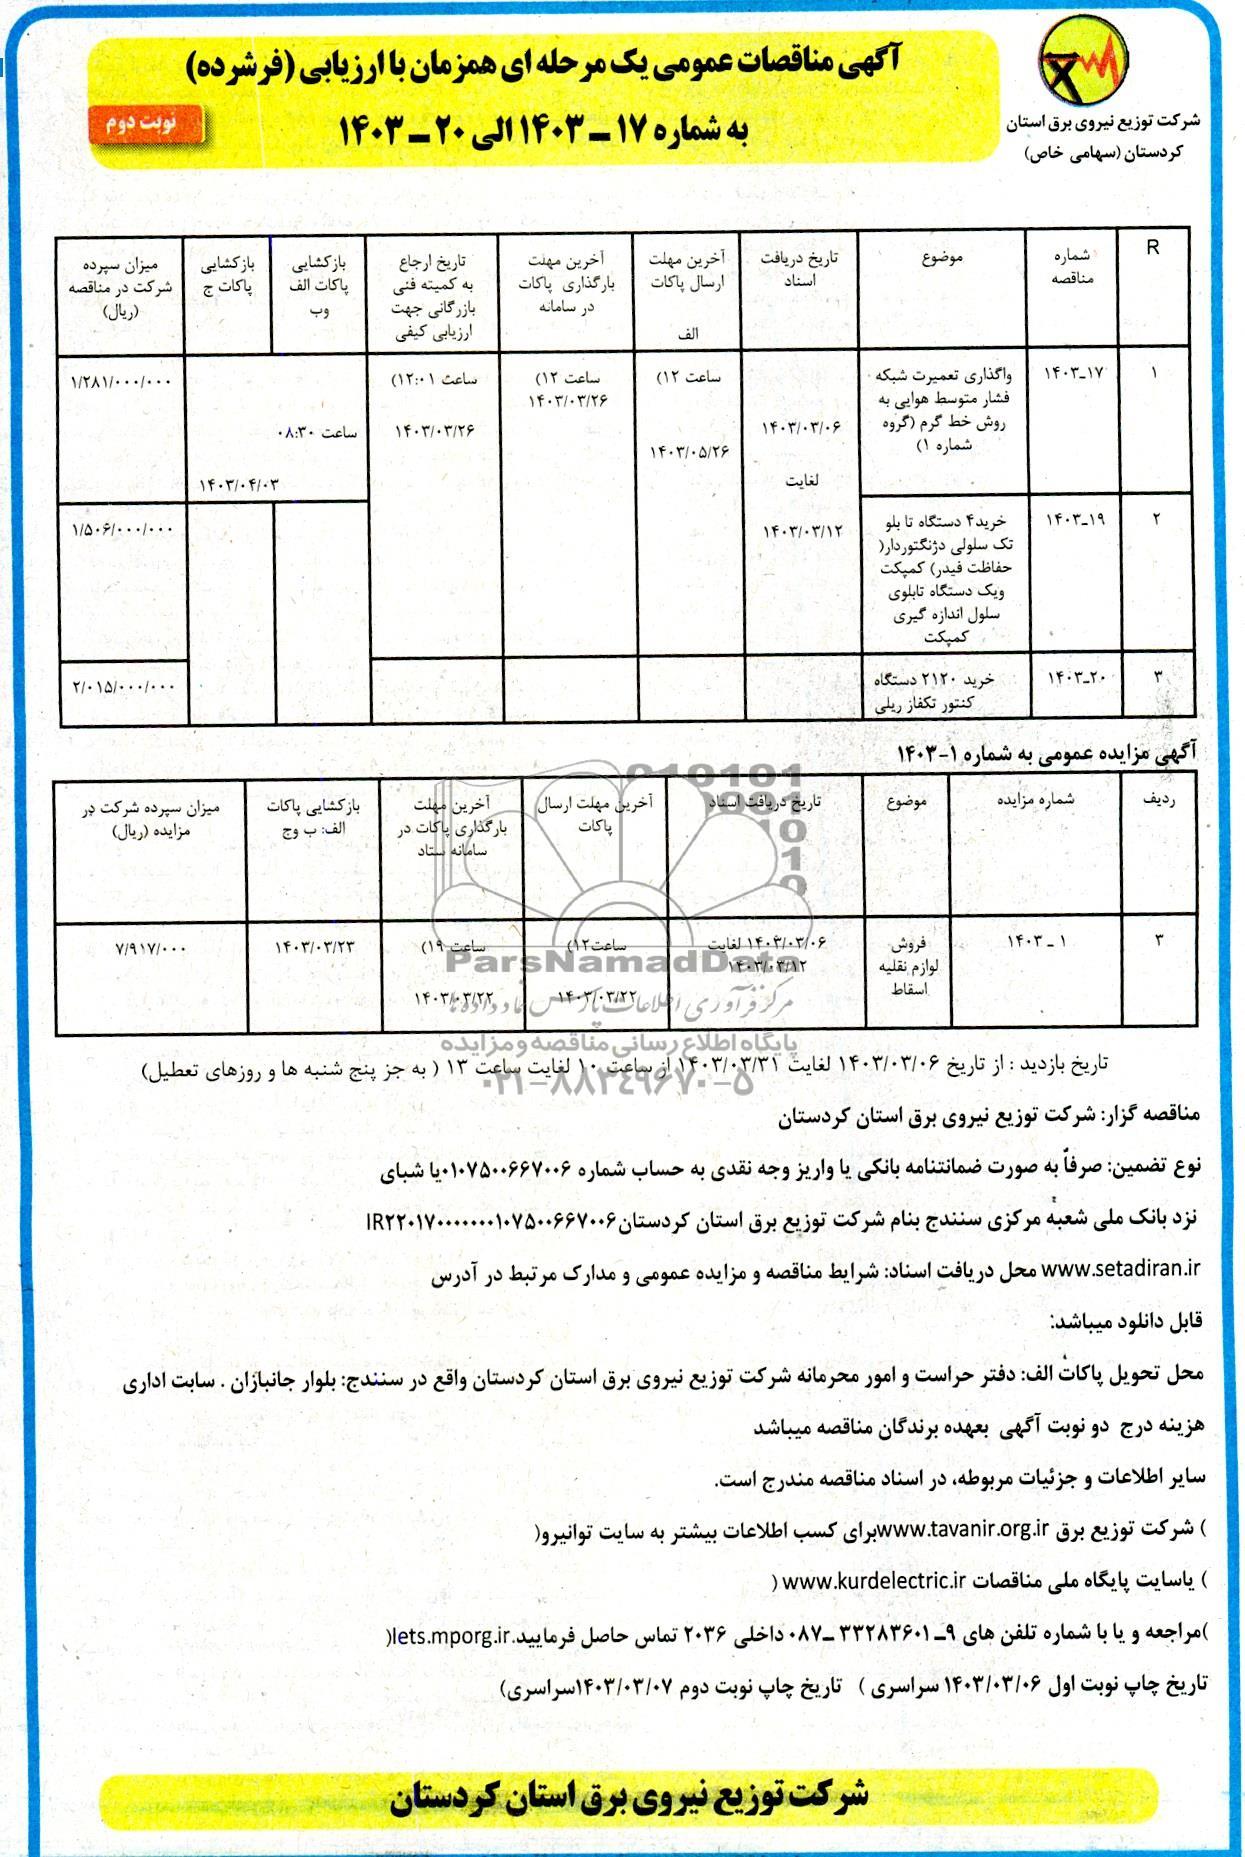 آگهی مناقصات عمومی یک مرحله ای همزمان با ارزیابی (فرشرده)
به شماره ۱۷ ـ ۱۴۰۳ الی ۲۰ ـ ۱۴۰۳
نوبت دوم
شرکت توزیع نیروی برق استان
کردستان (سهامی خاص)
R
شماره مناقصه
موضوع
تاریخ دریافت اسناد
آخرین مهلت ارسال پاکات الف
آخرین مهلت بارگذاری پاکات در سامانه
تاریخ ارجاع به کمیته فنی بازرگانی جهت ارزیابی کیفی
بازکشایی پاکات الف وب
بازکشایی پاکات ج
میزان سپرده شرکت در مناقصه (ریال)
۱
۱۴۰۳ـ۱۷
واگذاری تعمیرت شبکه فشار متوسط هوایی به روش خط گرم (گروه شماره ۱)
۱۴۰۳/۰۳/۰۶
لغایت
۱۴۰۳/۰۳/۱۲
ساعت ۱۲)
۱۴۰۳/۰۵/۲۶
ساعت ۱۲)
۱۴۰۳/۰۳/۲۶
ساعت ۱۲:۰۱)
۱۴۰۳/۰۳/۲۶
ساعت ۰۸:۳۰
۱۴۰۳/۰۴/۰۳
۱/۲۸۱/۰۰۰/۰۰۰
۲
۱۴۰۳ـ۱۹
خرید۴ دستگاه تا بلو تک سلولی دژنگتوردار( حفاظت فیدر) کمپکت ویک دستگاه تابلوی سلول اندازه گیری کمپکت
۱/۵۰۶/۰۰۰/۰۰۰
۳
۱۴۰۳ـ۲۰
خرید ۲۱۲۰ دستگاه کنتور تکفاز ریلی
۲/۰۱۵/۰۰۰/۰۰۰
آگهی مزایده عمومی به شماره ۱-۱۴۰۳
ردیف
شماره مزایده
موضوع
تاریخ دریافت اسناد
آخرین مهلت ارسال پاکات
آخرین مهلت بارگذاری پاکات در سامانه ستاد
بازکشایی پاکات الف: ب وج
میزان سپرده شرکت در مزایده (ریال)
۳
۱ ـ ۱۴۰۳
فروش لوازم نقلیه اسقاط
۱۴۰۳/۰۳/۰۶ لغایت
۱۴۰۳/۰۳/۱۲
ساعت۱۲)
۱۴۰۳/۰۳/۲۲
ساعت ۱۹)
۱۴۰۳/۰۳/۲۲
۱۴۰۳/۰۳/۲۳
۷/۹۱۷/۰۰۰
ParsNamadData
مرکز فرآوری اطلاعات پارس نماد داده ها
پایگاه اطلاع رسانی مناقصه و مزایده
۰۲۱-۸۸۳۴۹۶۷۰-۵
تاریخ بازدید : از تاریخ ۱۴۰۳/۰۳/۰۶ لغایت ۱۴۰۳/۰۳/۳۱ از ساعت ۱۰ لغایت ساعت ۱۳ ( به جز پنج شنبه ها و روزهای تعطیل)
مناقصه گزار: شرکت توزیع نیروی برق استان کردستان
نوع تضمین: صرفاً به صورت ضمانتنامه بانکی یا واریز وجه نقدی به حساب شماره ۰۱۰۷۵۰۰۶۶۷۰۰۶یا شبای
نزد بانک ملی شعبه مرکزی سنندج بنام شرکت توزیع برق استان کردستان IR۲۲۰۱۷۰۰۰۰۰۰۰۱۰۷۵۰۰۶۶۷۰۰۶
www.setadiran.ir محل دریافت اسناد: شرایط مناقصه و مزایده عمومی و مدارک مرتبط در آدرس
قابل دانلود میباشد:
محل تحویل پاکات الف: دفتر حراست و امور محرمانه شرکت توزیع نیروی برق استان کردستان واقع در سنندج: بلوار جانبازان . سایت اداری
هزینه درج دو نوبت آگهی بعهده برندگان مناقصه میباشد
سایر اطلاعات و جزئیات مربوطه، در اسناد مناقصه مندرج است.
) شرکت توزیع برق www.tavanir.org.irبرای کسب اطلاعات بیشتر به سایت توانیرو(
) یاسایت پایگاه ملی مناقصات www.kurdelectric.ir (
)مراجعه و یا با شماره تلفن های ۹ـ ۳۳۲۸۳۶۰۱ ـ۰۸۷ داخلی ۲۰۳۶ تماس حاصل فرمایید.iets.mporg.ir(
تاریخ چاپ نوبت اول ۱۴۰۳/۰۳/۰۶ سراسری ) تاریخ چاپ نوبت دوم ۱۴۰۳/۰۳/۰۷سراسری)
شرکت توزیع نیروی برق استان کردستان